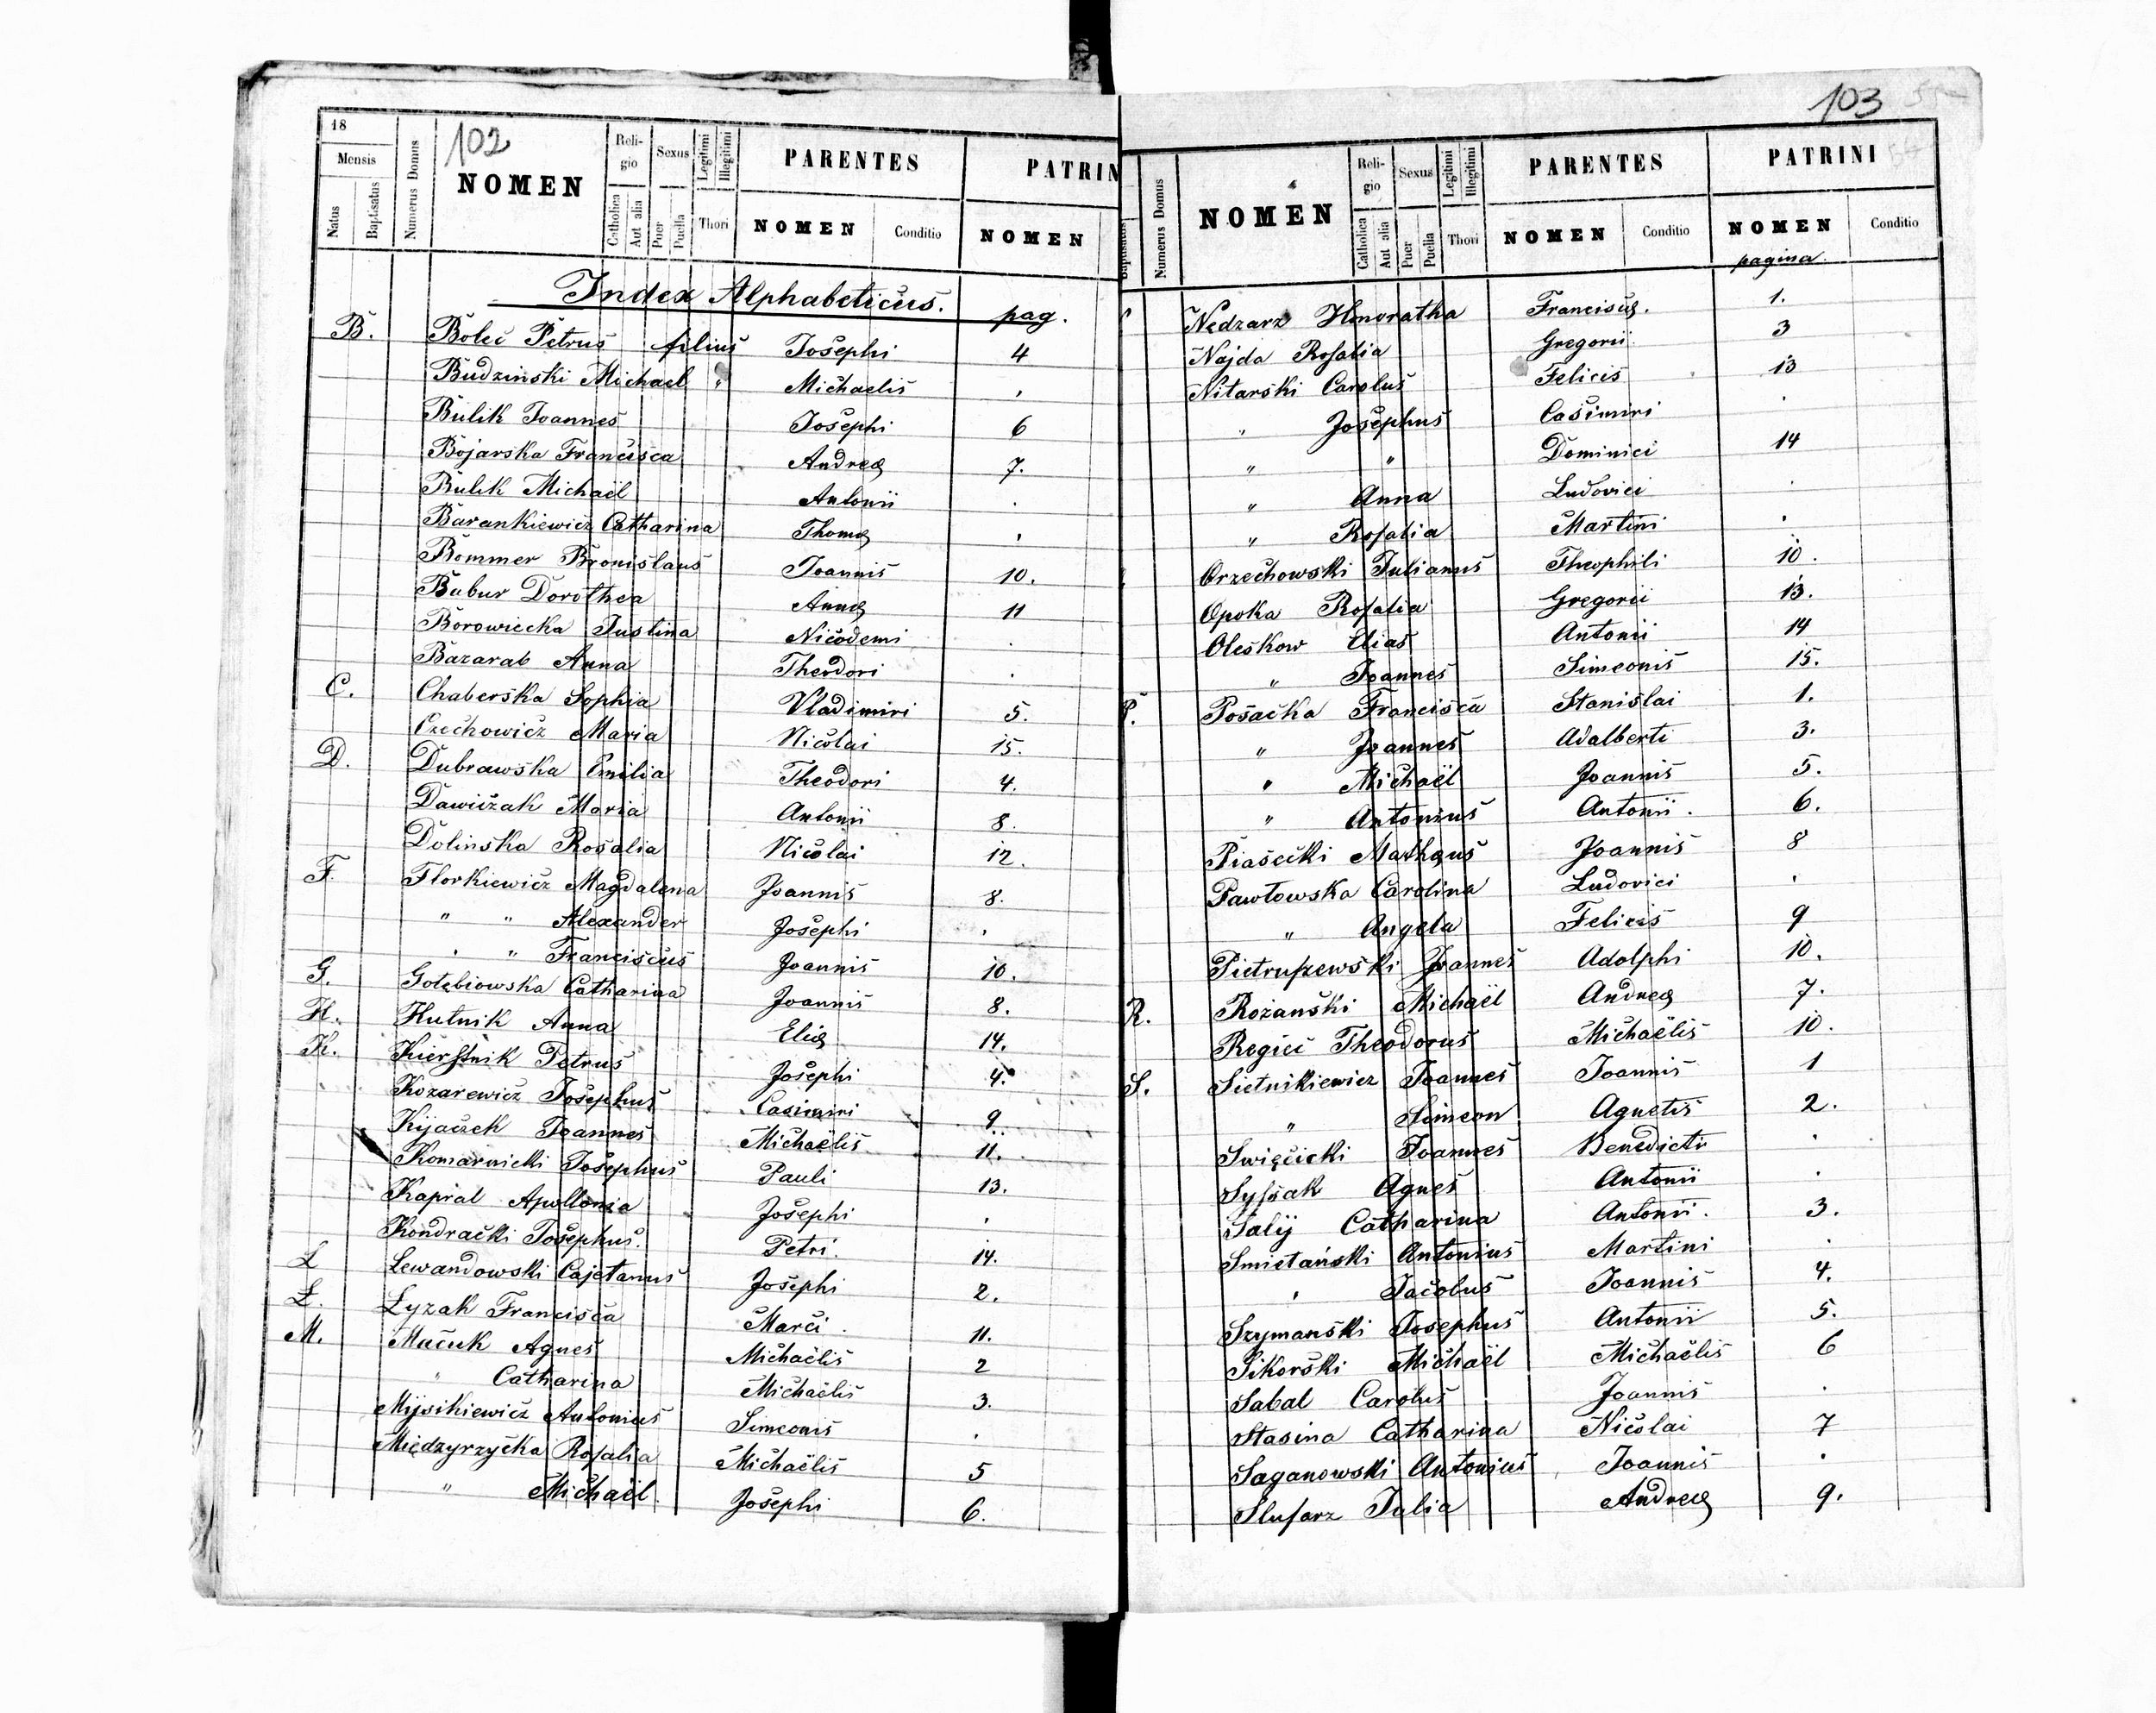 18
102
Mensis
Natus
Baptisatus
Numerus Domus
NOMEN
Reli-
gio
Catholica
Aut alia
Sexus
Puer
Puella
Legitimi
Illegitimi
Thori
PARENTES
NOMEN
Conditio
PATRIN
NOMEN
Index Alphabeticus. pag.
B. Boleć Petrus filius Josephi 4
Budzinski Michael " Michaelis .
Bulik Joannes Josephi 6
Bojarska Francisca Andreæ 7.
Bulik Michaël Antonii .
Barankiewicz Catharina Thomæ .
Bommer Bronislaus Joannis 10.
Bubur Dorothea Annæ 11
Borowiecka Justina Nicodemi .
Bazarab Anna Theodori .
C. Chaberska Sophia Vladimiri 5.
Czechowicz Maria Nicolai 15.
D. Dubrawska Emilia Theodori 4.
Dawiczak Maria Antonii 8.
Dolinska Rosalia Nicolai 12.
F. Florkiewicz Magdalena Joannis 8.
" " Alexander Josephi .
" " Franciscus Joannis 10.
G. Gołębiowska Catharina Joannis 8.
H. Hutnik Anna Eliæ 14.
K. Kierstnik Petrus Josephi 4.
Kozarewicz Josephus Casimiri 9.
Kijaczek Joannes Michaëlis 11.
Komarnicki Josephus Pauli 13.
Kapral Apollonia Josephi .
Kondracki Josephus. Petri. 14.
L Lewandowski Cajetanus Josephi 2.
Ł. Łyzak Francisca Marci. 11.
M. Macuk Agnes Michaëlis 2
" Catharina Michaëlis 3.
Mijsikiewicz Antonius Simeonis .
Międzyrzycka Rosalia Michaëlis 5
" Michaël Josephi 6.
103
Baptisatus
Numerus Domus
NOMEN
Reli-
gio
Catholica
Aut alia
Sexus
Puer
Puella
Legitimi
Illegitimi
Thori
PARENTES
NOMEN
Conditio
PATRINI
NOMEN
Conditio
pagina.
Nędzarz Honoratha Franciscæ. 1.
Najda Rosalia Gregorii 3
Nitarski Carolus Felicis 13
" Josephus Casimiri .
" " Dominici 14
" Anna Ludovici .
" Rosalia Martini .
Orzechowski Julianus Theophili 10.
Opoka Rosalia Gregorii 13.
Oleskow Elias Antonii 14
" Joannes Simeonis 15.
P. Posacka Francisca Stanislai 1.
" Joannes Adalberti 3.
" Michaël Joannis 5.
" Antonius Antonii. 6.
Piasecki Mathæus Joannis 8
Pawłowska Carolina Ludovici .
" Angela Felicis 9
Pietruszewski Joannes Adolphi 10.
R. Rożanski Michaël Andreæ 7.
Regieć Theodorus Michaëlis 10.
S. Sietnikiewicz Joannes Joannis 1
" Simeon Agnetis 2.
Swięcicki Joannes Benedicti .
Syssak Agnes Antonii .
Salij Catharina Antonii. 3.
Smietański Antonius Martini .
" Jacobus Joannis 4.
Szymanski Josephus Antonii 5.
Sikorski Michaël Michaëlis 6
Sabal Carolus Joannis .
Stasina Catharina Nicolai 7
Saganowski Antonius Joannis .
Slusarz Julia Andreæ 9.